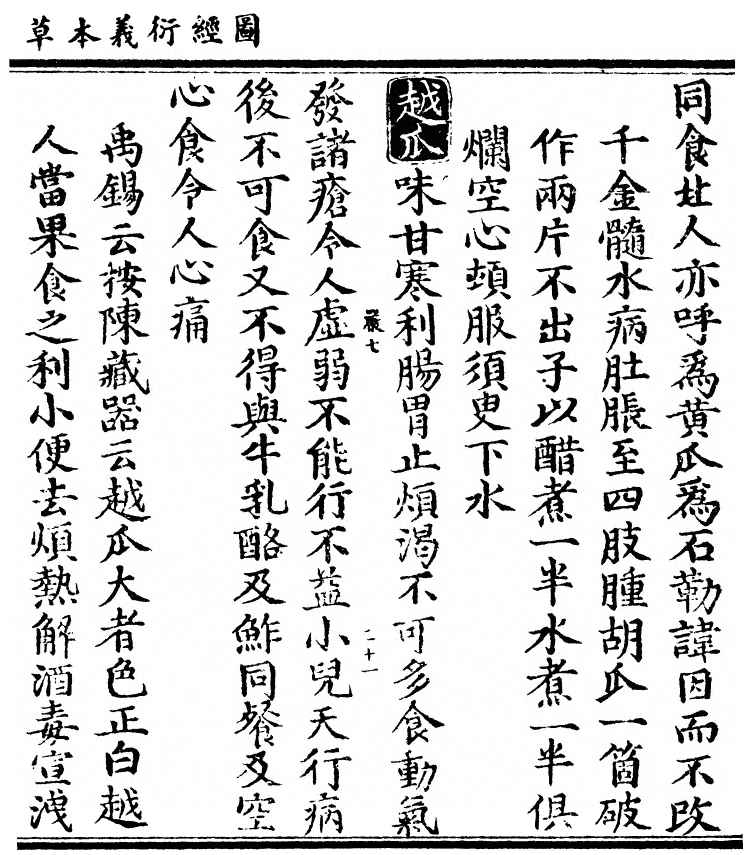 圖經衍義本草
同食北人亦呼爲黄瓜爲石勒諱因而不改
千金髓水病肚脹至四肢腫胡瓜一箇破
作兩片不出子以醋煮一半水煮一半俱
爛空心頓服須臾下水
越瓜味甘寒利腸胃止煩渴不可多食動氣
嚴七 二十一
發諸瘡令人虛弱不能行不益小兒天行病
後不可食又不得與牛乳酪及鮓同飱及空
心食令人心痛
禹錫云按陳藏器云越瓜大者色正白越
人當果食之利小便去煩熱解酒毒宣洩